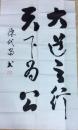 大道之行
天下为公